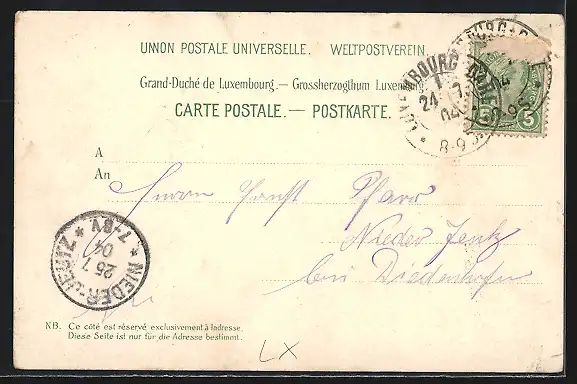 UNION POSTALE UNIVERSELLE. WELTPOSTVEREIN.
Grand-Duché de Luxembourg. — Grossherzogthum Luxemburg.
CARTE POSTALE. — POSTKARTE.
LUXEMBOURG
24 7
04
8-9
5 5
A
An
Herrn Ernst
Nieder Jeutz
bei Diedenhofen
NIEDER-JEUTZ
25 7
04
7-8V
NB. Ce côté est réservé exclusivement à ladresse.
Diese Seite ist nur für die Adresse bestimmt.
LX